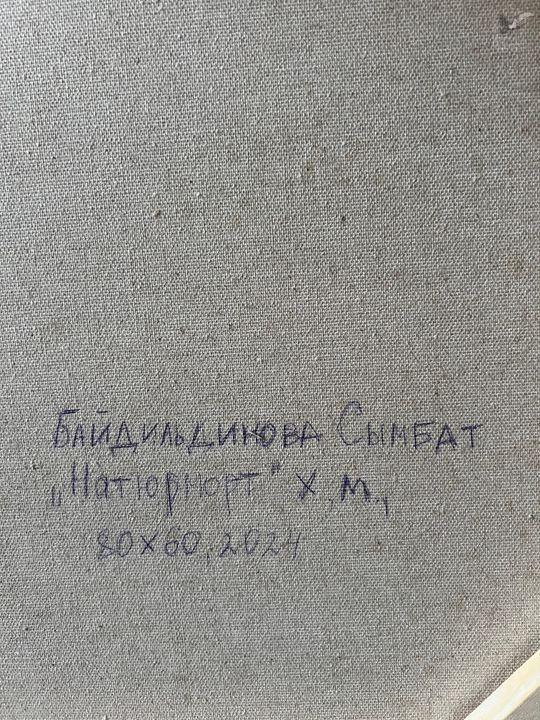 Байдильдинова Сымбат
„Натюрморт" х.м.,
80х60, 2024